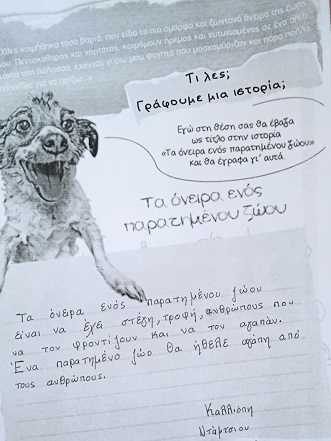 Χθες κοιμήθηκα τόσο βαριά, που είδα το πιο όμορφο και ζωντανό όνειρο της ζωής
μου. Πεντακάθαρος και χορτάτος, κοιμόμουν ήρεμος και ευτυχισμένος σε ένα σπίτι
κοντά στη θάλασσα. έχοντας γύρω μου φαγητά που μοσχομύριζαν και πάρα πολλά
παιχνίδια για να παίζω...»
Τι λες;
Γράφουμε μια ιστορία;
Εγώ στη θέση σας θα έβαζα
ως τίτλο στην ιστορία
«Τα όνειρα ενός παρατημένου ζώου»
και θα έγραφα γι' αυτά.
Τα όνειρα ενός
παρατημένου ζώου
Τα όνειρα ενός παρατημένου ζώου
είναι να έχει στέγη, τροφή, ανθρώπους που
να τον φροντίζουν και να τον αγαπάν.
Ένα παρατημένο ζώο θα ήθελε αγάπη από
τους ανθρώπους.
Καλλιόπη
Ντάμτσιου